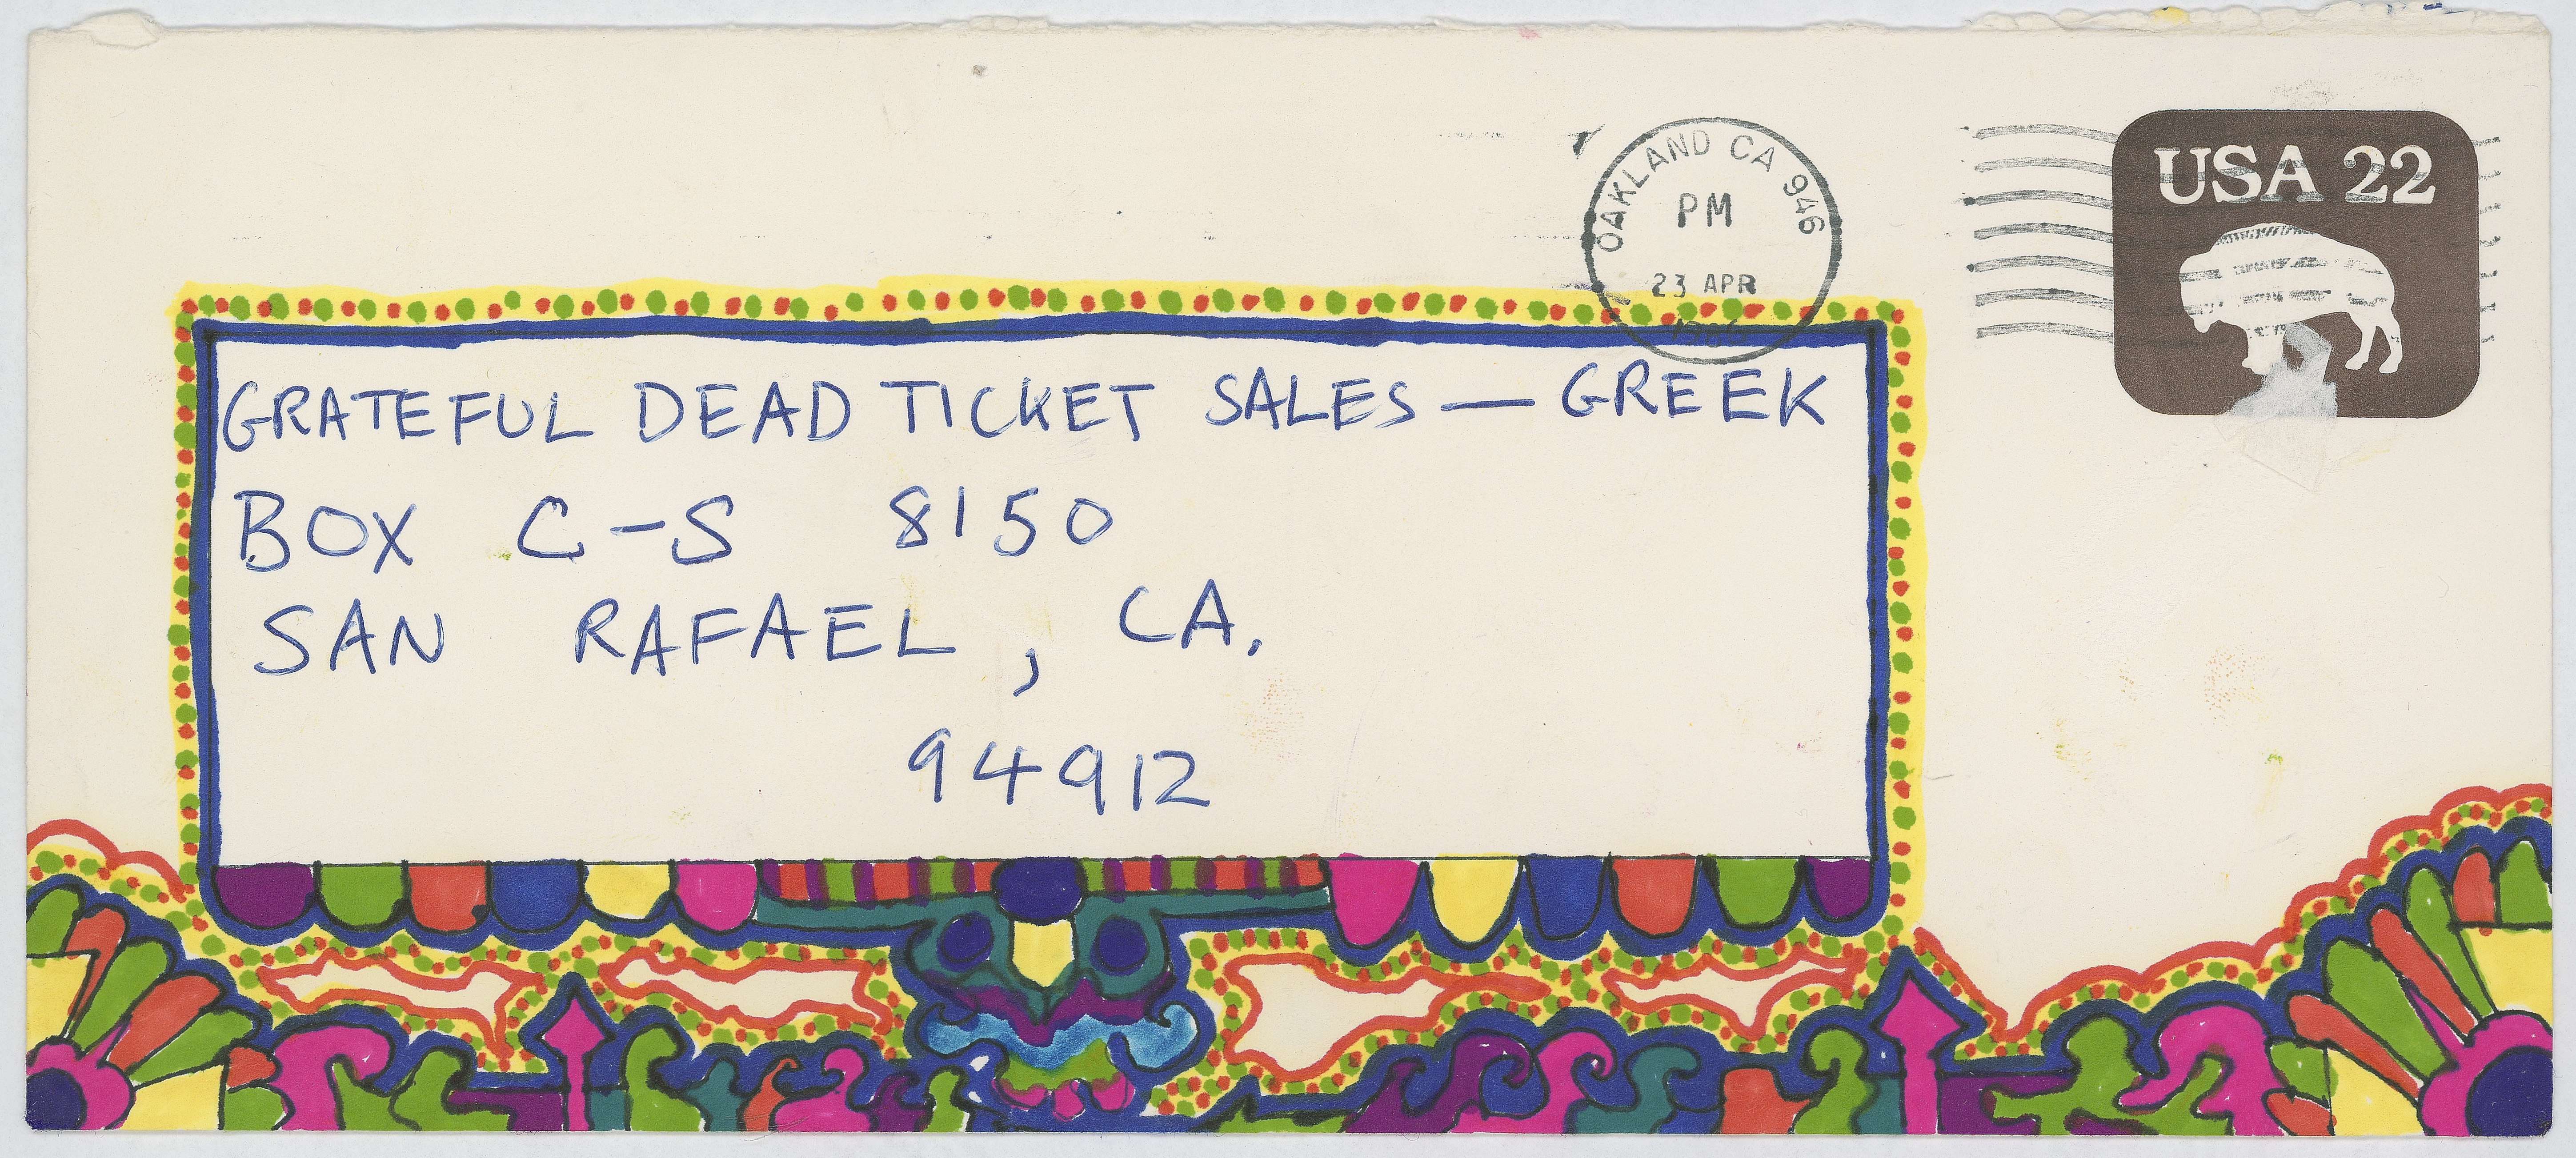 OAKLAND CA 946
PM
23 APR
USA 22
GRATEFUL DEAD TICKET SALES — GREEK
BOX C-S 8150
SAN RAFAEL, CA.
94912